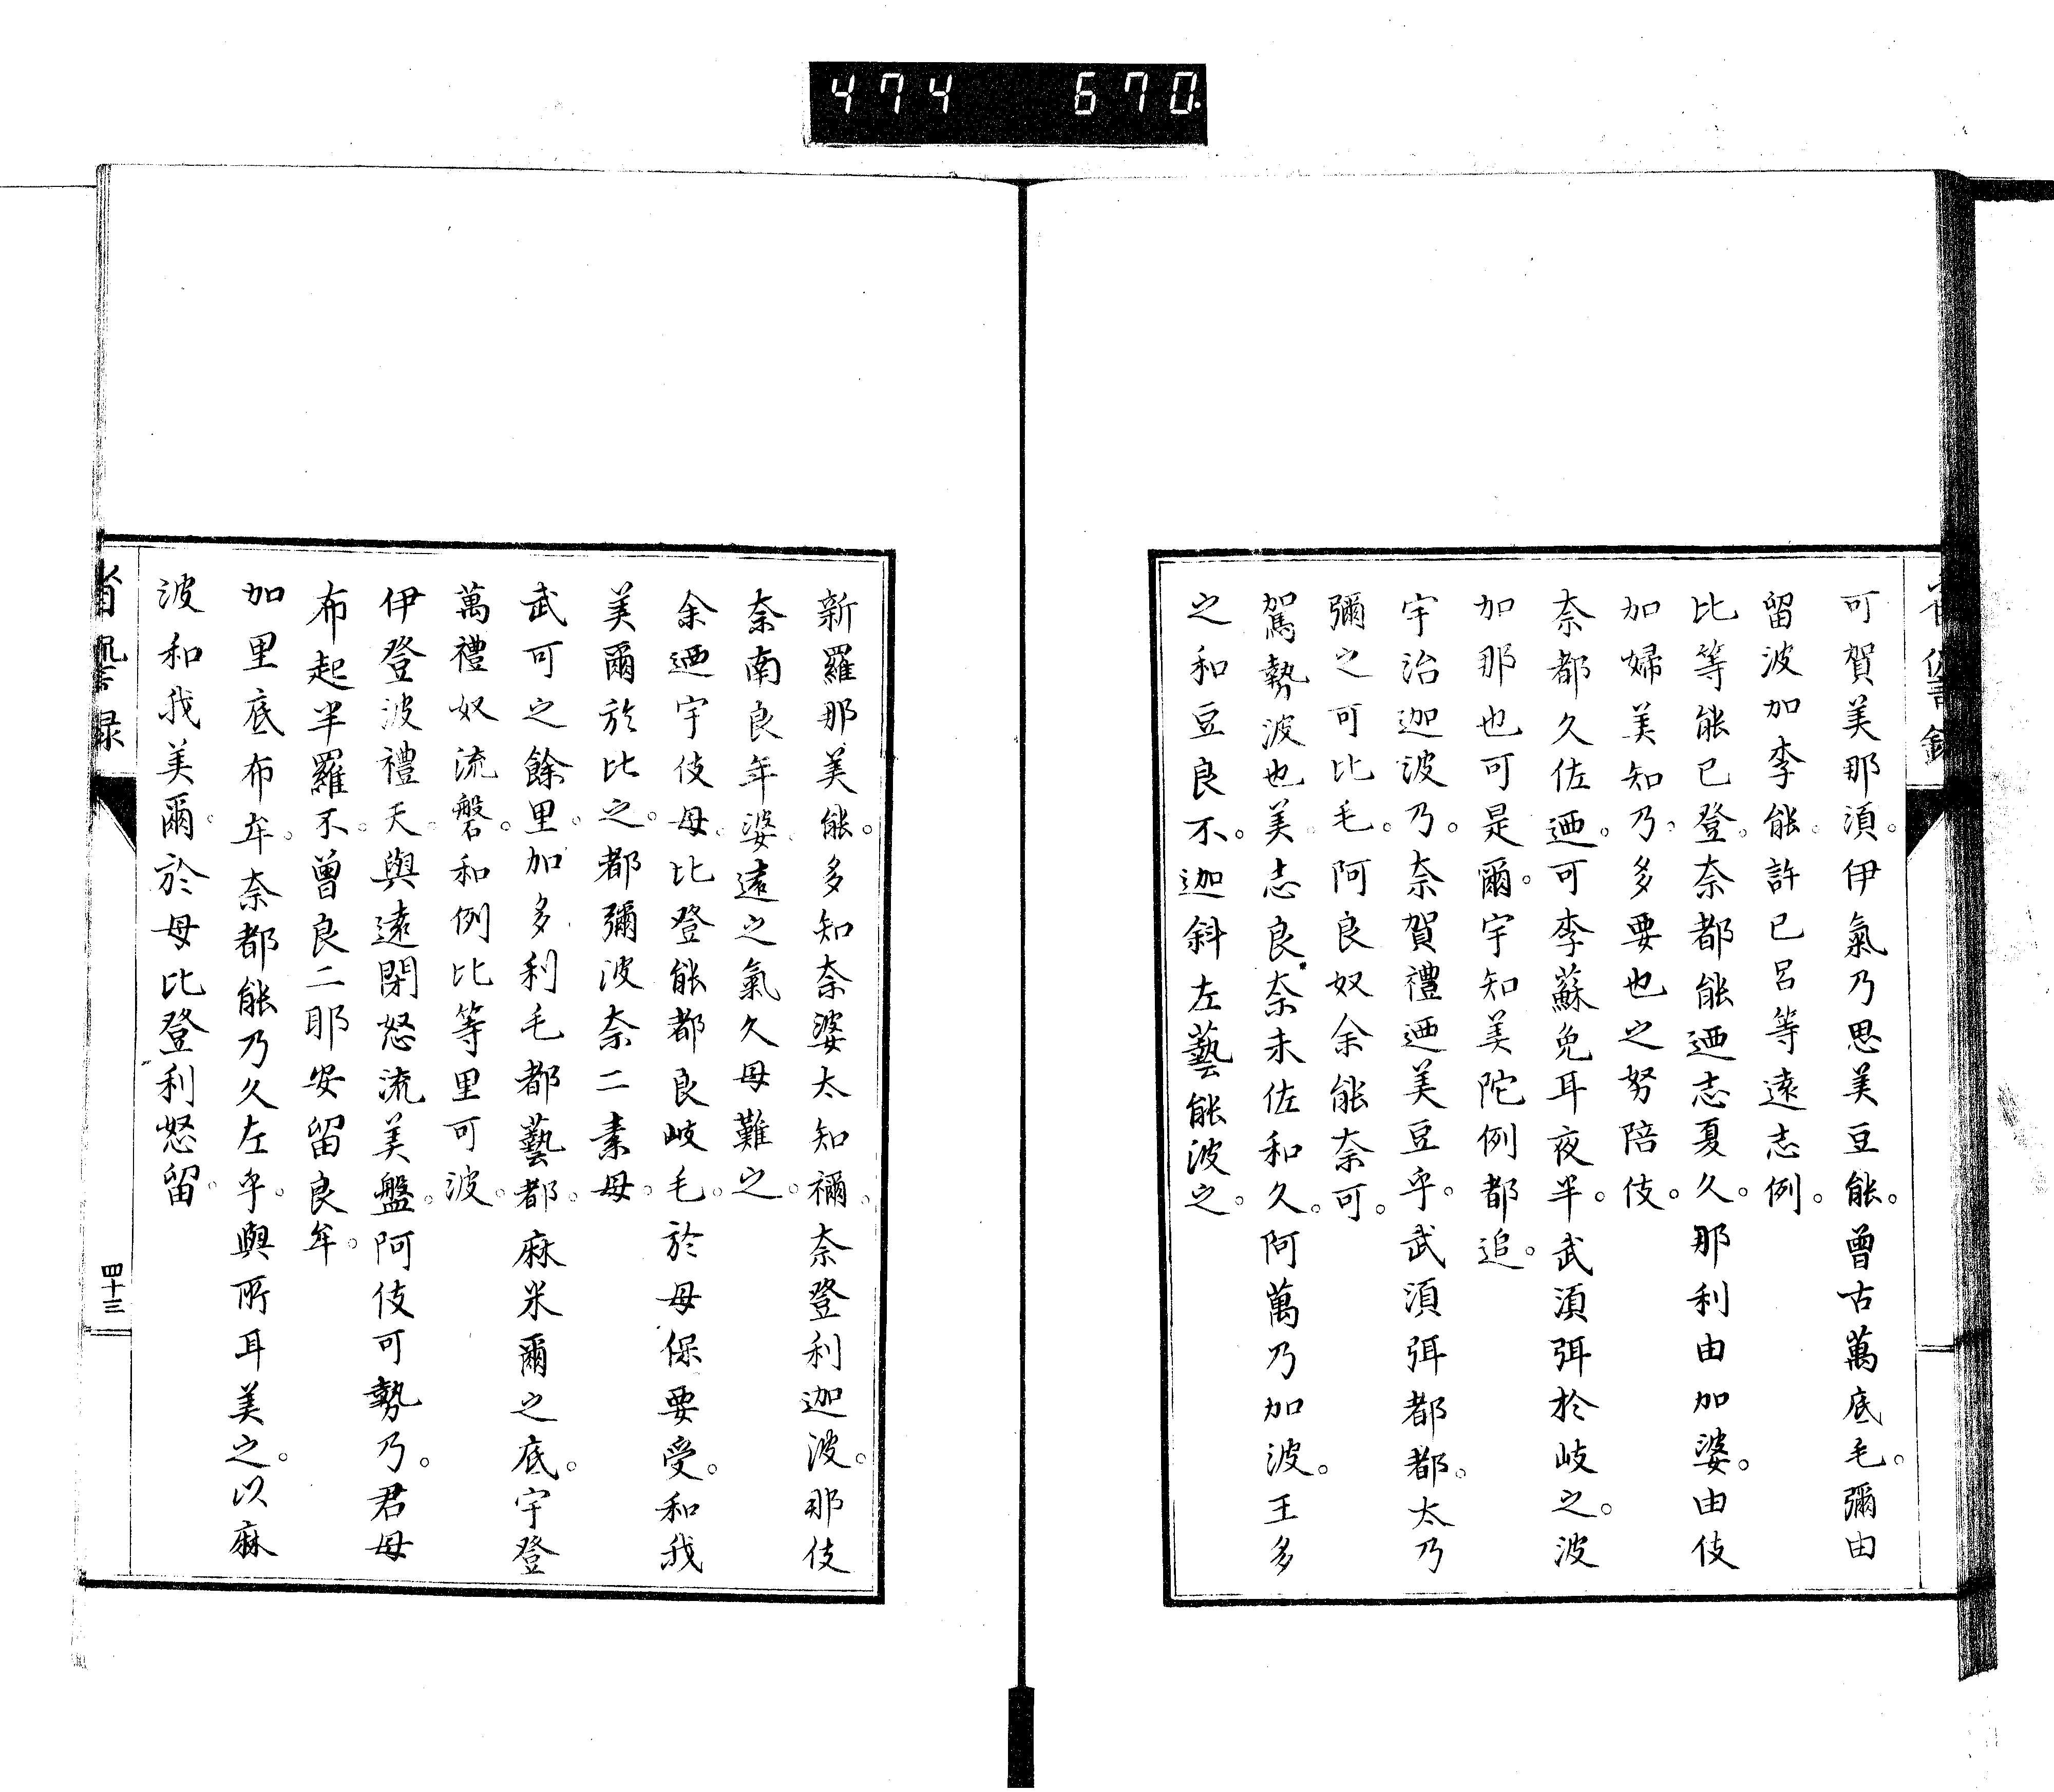 474 670
可賀美那須。伊氣乃思美豆能。曾古萬底毛。彌由
留波加李能。許已呂等遠志例。
比等能已登。奈都能迺志夏久。那利由加婆。由伎
加婦美知乃。多要也之努陪伎。
奈都久佐迺。可李蘇免耳夜半。武須弭於岐之。波
加那也可是爾。宇知美陀例都追。
宇治迦波乃。奈賀禮迺美豆乎。武須弭都都。太乃
彌之可比毛。阿良奴余能奈可。
駕勢波也美。志良奈未佐和久。阿萬乃加波。王多
之和豆良不。迦斜左藝能波之。
新羅那美能。多知奈婆太知禰。奈登利迦波。那伎
奈南良年婆。遠之氣久母難之。
余迺宇伎母。比登能都良岐毛。於母保要受。和我
美爾於比之。都彌波奈二素母。
武可之餘里。加多利毛都藝都。麻米爾之底。宇登
萬禮奴流磐。和例比等里可波。
伊登波禮天。與遠閉怒流美盤。阿伎可勢乃。君母
布起半羅不。曾良二耶安留良年。
加里底布年。奈都能乃久左乎。與所耳美之。以麻
波和我美爾。於母比登利怒留。
省諐録
四十三